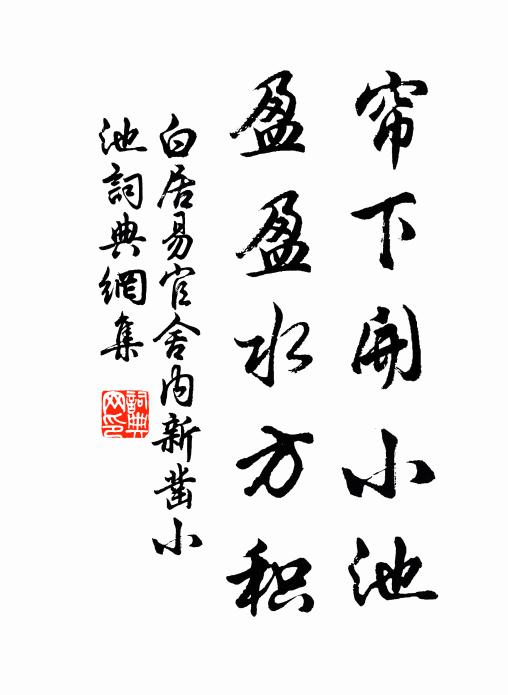 帘下開小池
盈盈水方积
白居易官舍内新凿小
池詞典網集
詞典
网印